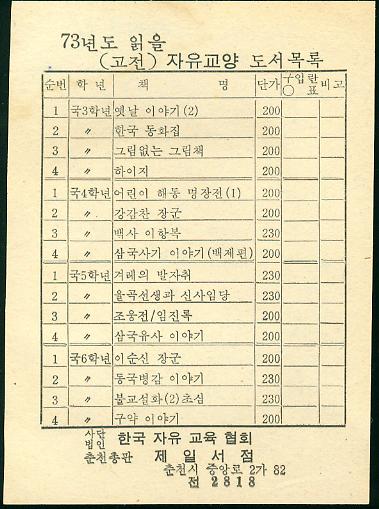 73년도 읽을
(고전) 자유교양 도서목록
순번 학년 책 명 단가 구입란 ○표 비고
1 국3학년 옛날 이야기(2) 200
2 〃 한국 동화집 200
3 〃 그림없는 그림책 200
4 〃 하이지 200
1 국4학년 어린이 해동 명장전(1) 200
2 〃 강감찬 장군 200
3 〃 백사 이항복 230
4 〃 삼국사기 이야기(백제편) 200
1 국5학년 겨레의 발자취 230
2 〃 율곡선생과 신사임당 230
3 〃 조웅전/임진록 230
4 〃 삼국유사 이야기 200
1 국6학년 이순신 장군 200
2 〃 동국병감 이야기 230
3 〃 불교설화(2)초심 230
4 〃 구약 이야기 200
사단법인 한국 자유 교육 협회
춘천총판 제일서점
춘천시 중앙로 2가 82
전 2818